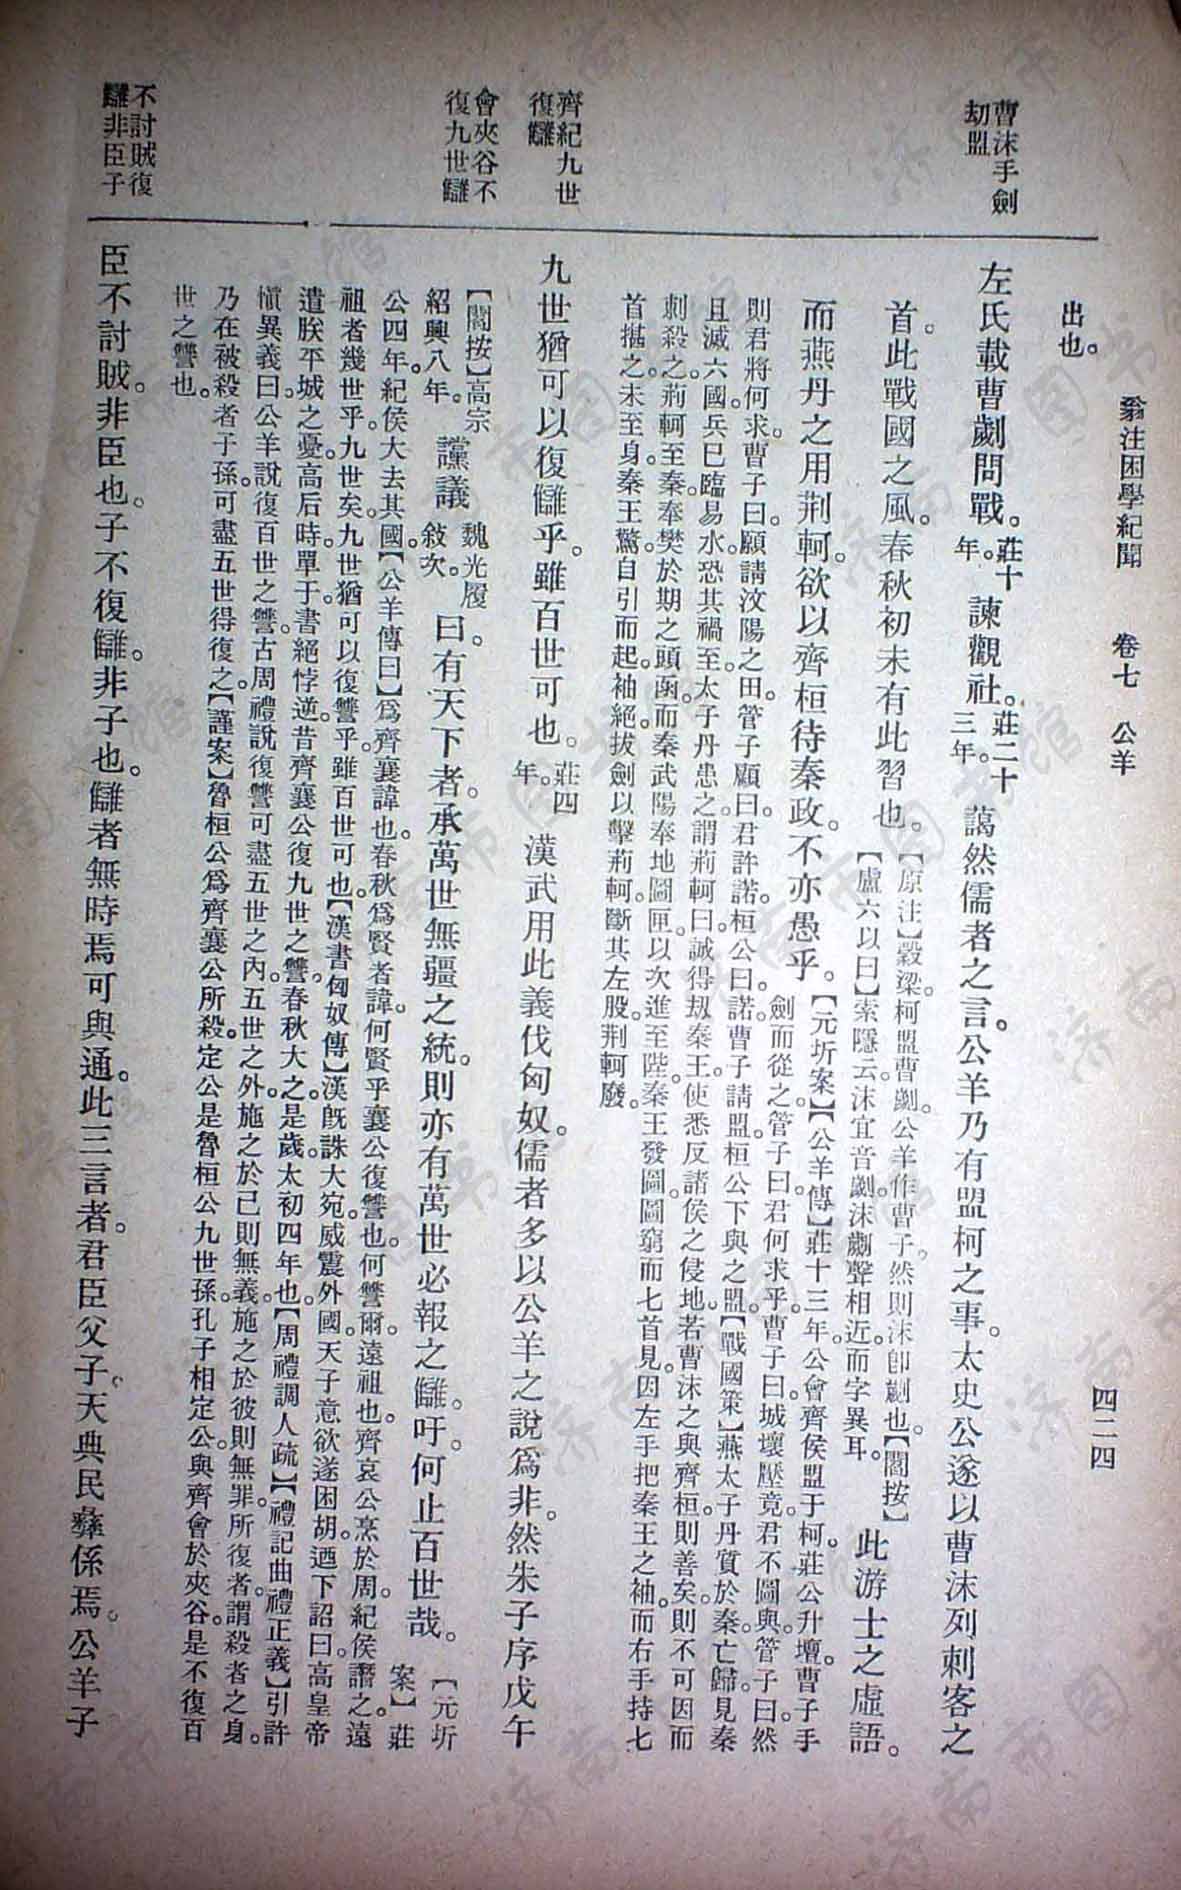 翁注困學紀聞　卷七　公羊　四二四
出也。
曹沫手劍
劫盟
左氏載曹劌問戰。莊十年。諫觀社。莊二十三年。藹然儒者之言。公羊乃有盟柯之事。太史公遂以曹沫列刺客之
首。此戰國之風。春秋初未有此習也。【原注】穀梁。柯盟曹劌。公羊作曹子。然則沫卽劌也。【閻按】【盧六以曰】索隱云。沫宜音劌。沫劌聲相近。而字異耳。此游士之虛語。
而燕丹之用荆軻。欲以齊桓待秦政。不亦愚乎。【元圻案】【公羊傳】莊十三年。公會齊侯盟于柯。莊公升壇。曹子手劍而從之。管子曰。君何求乎。曹子曰。城壞壓竟。君不圖與。管子曰。然
則君將何求。曹子曰。願請汶陽之田。管子顧曰。君許諾。桓公曰。諾。曹子請盟。桓公下與之盟。【戰國策】燕太子丹質於秦。亡歸。見秦
且滅六國。兵已臨易水。恐其禍至。太子丹患之。謂荊軻曰。誠得刼秦王。使悉反諸侯之侵地。若曹沫之與齊桓。則善矣。則不可。因而
刺殺之。荊軻至秦。奉樊於期之頭函。而秦武陽奉地圖匣。以次進至陛。秦王發圖。圖窮而七首見。因左手把秦王之袖。而右手持七
首揕之。未至身。秦王驚。自引而起。袖絕。拔劍以擊荊軻。斷其左股。荆軻廢。
齊紀九世
復讎
九世猶可以復讎乎。雖百世可也。莊四年。漢武用此義伐匈奴。儒者多以公羊之說爲非。然朱子序戊午
會夾谷不
復九世讎
【閻按】高宗紹興八年。讜議魏光履敍次。曰。有天下者。承萬世無疆之統。則亦有萬世必報之讎。吁。何止百世哉。【元圻案】莊
公四年。紀侯大去其國。【公羊傳曰】爲齊襄諱也。春秋爲賢者諱。何賢乎襄公。復讐也。何讐爾。遠祖也。齊哀公烹於周。紀侯譖之。遠
祖者幾世乎。九世矣。九世猶可以復讐乎。雖百世可也。【漢書匈奴傳】漢旣誅大宛。威震外國。天子意欲遂困胡。迺下詔曰。高皇帝
遺朕平城之憂。高后時。單于書絕悖逆。昔齊襄公復九世之讐。春秋大之。是歲太初四年也。【周禮調人疏】【禮記曲禮正義】引許
愼異義曰。公羊說復百世之讐。古周禮說復讐可盡五世之內。五世之外。施之於己則無義。施之於彼則無罪。所復者。謂殺者之身。
乃在被殺者子孫。可盡五世得復之。【謹案】魯桓公爲齊襄公所殺。定公是魯桓公九世孫。孔子相定公。與齊會於夾谷。是不復百
世之讐也。
不討賊復
讎非臣子
臣不討賊。非臣也。子不復讎。非子也。讎者無時焉可與通。此三言者。君臣父子。天典民彝係焉。公羊子